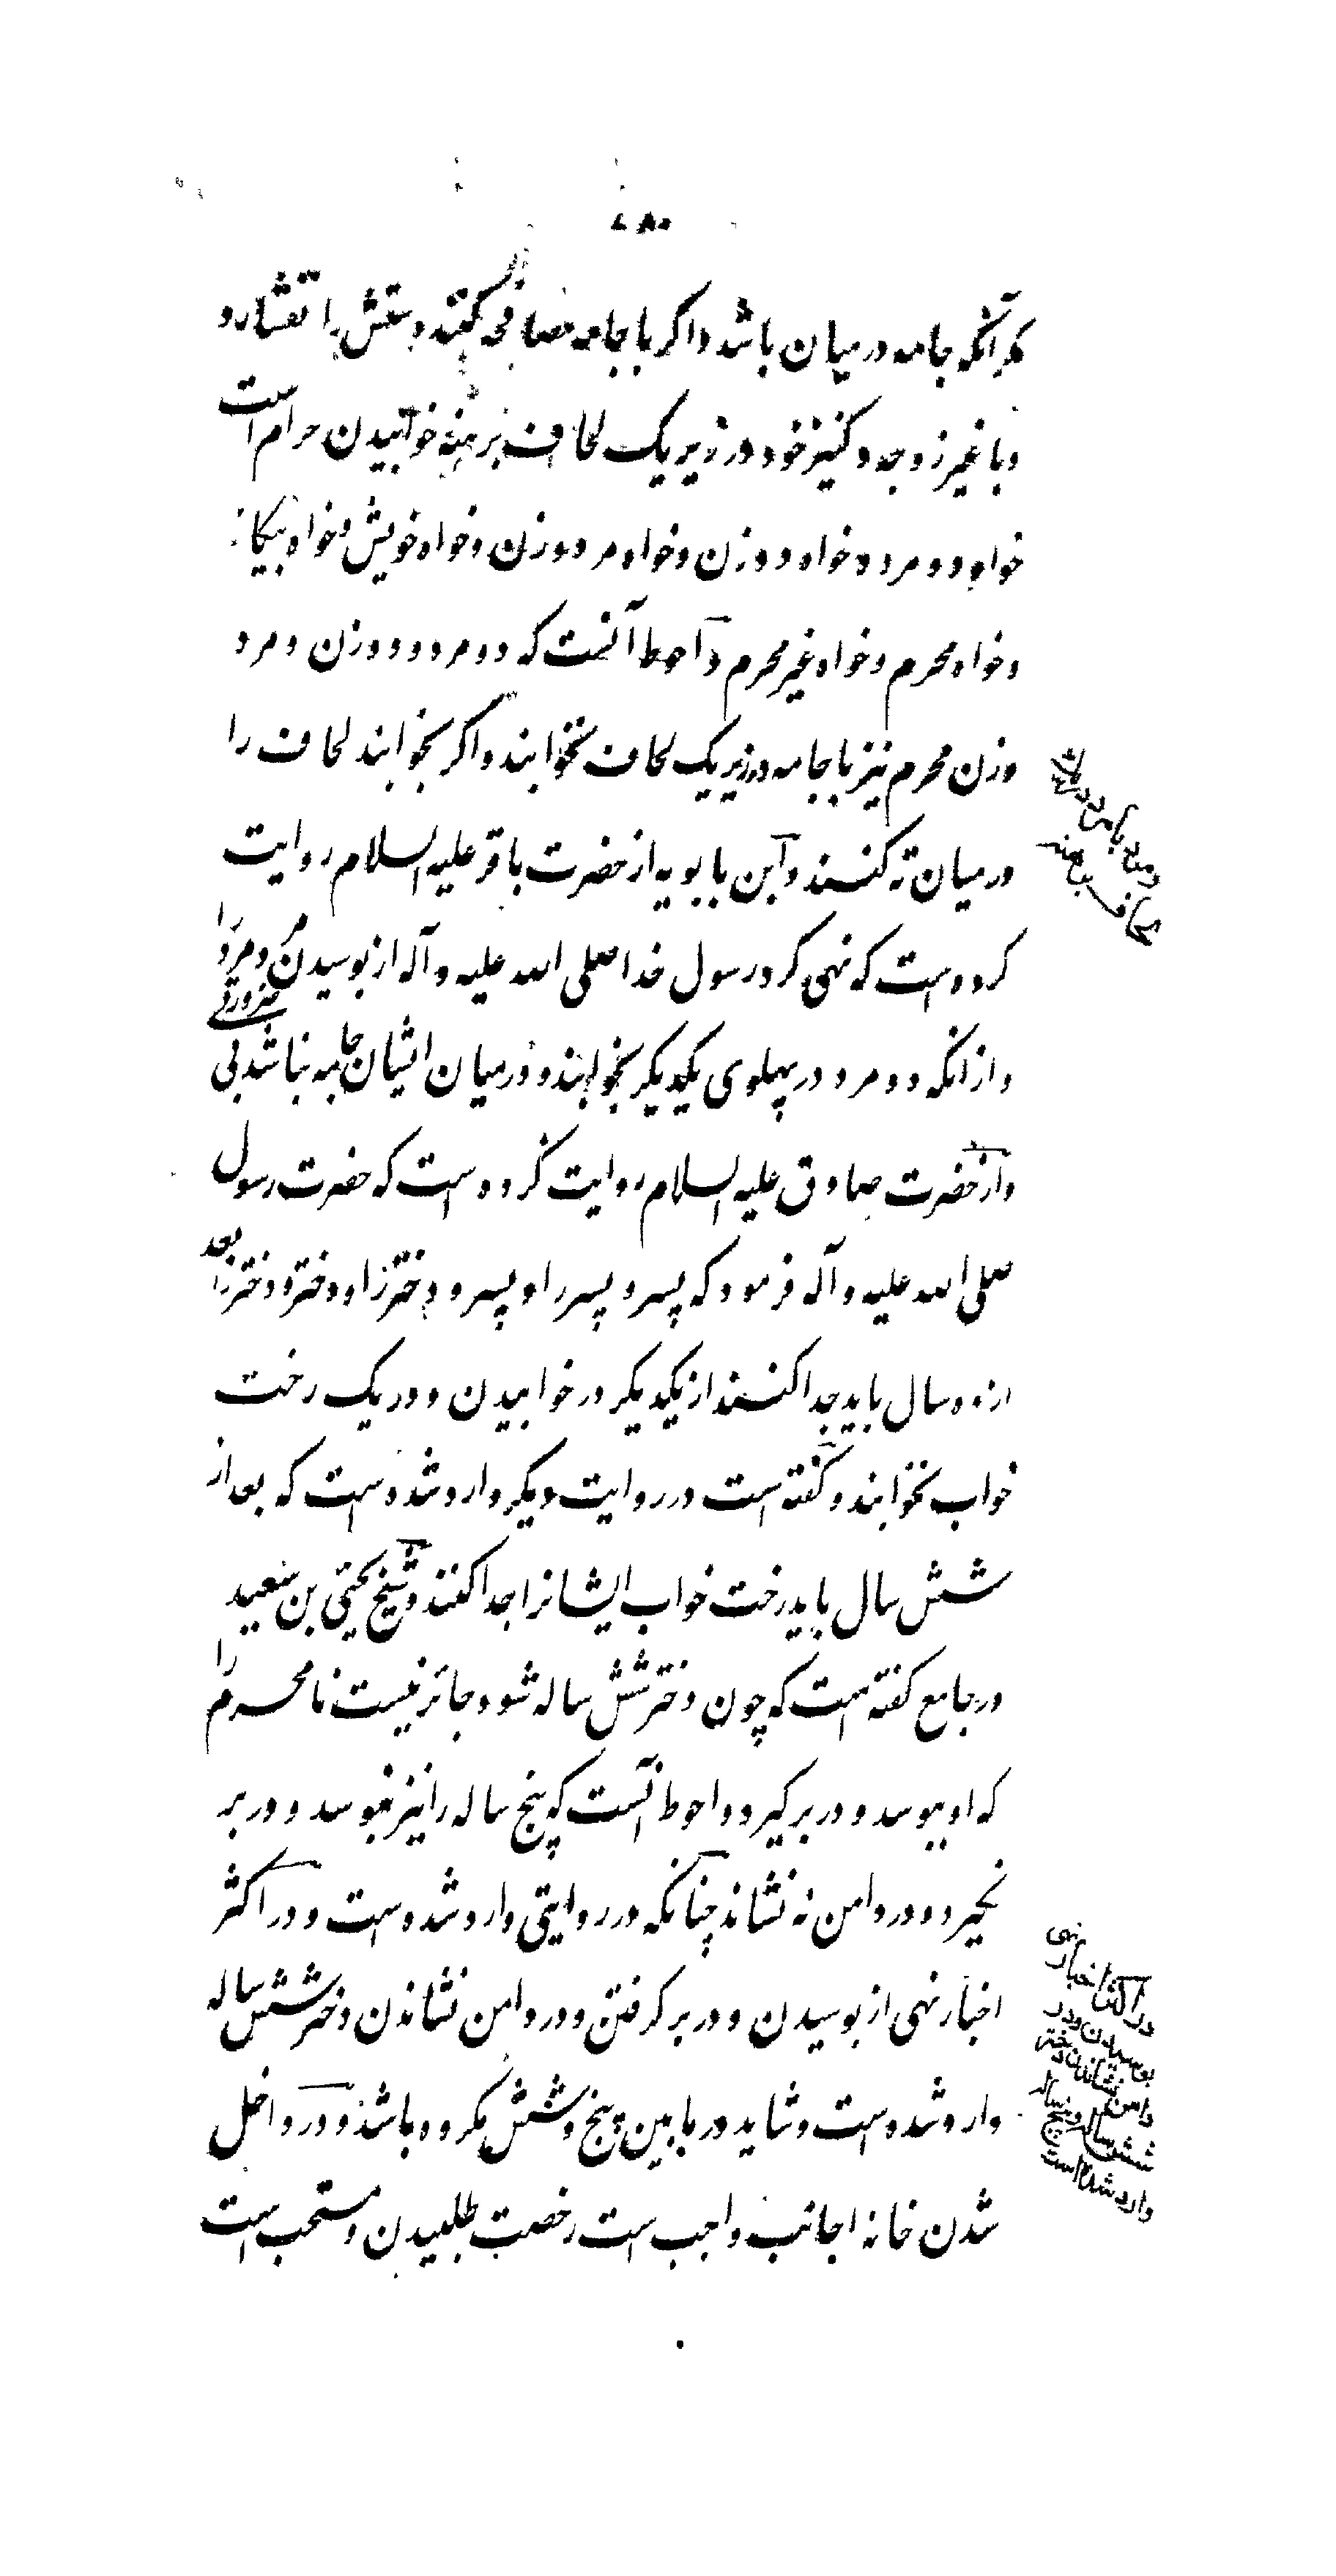 ۷۸۰
مگر آنکه جامه در میان باشد و اگر با جامه مصافحه کنند دستش را نفشارد
و با غیر زوجه و کنیز خود در زیر یک لحاف برهنه خوابیدن حرام است
خواه دو مرد و خواه دو زن و خواه مرد و زن و خواه خویش و خواه بیگانه
و خواه محرم و خواه غیر محرم و احوط آنست که دو مرد و دو زن و مرد
و زن محرم نیز با جامه در زیر یک لحاف نخوابند و اگر بخوابند لحاف را
در میان ته کنند و ابن بابویه از حضرت باقر علیه السلام روایت
کرده است که نهی کرد رسول خدا صلی الله علیه و آله از بوسیدن مرد مرد را
و از آنکه دو مرد در پهلوی یکدیگر بخوابند و در میان ایشان جامه نباشد بی ضرورتی
و از حضرت صادق علیه السلام روایت کرده است که حضرت رسول
صلی الله علیه و آله فرمود که پسر و پسر را و پسر و دختر را و دختر و دختر را بعد
از ده سال باید جدا کنند از یکدیگر در خوابیدن و در یک رخت
خواب نخوابند و گفته است در روایت دیگر وارد شده است که بعد از
شش سال باید رخت خواب ایشانرا جدا کنند و شیخ یحیی بن سعید
در جامع گفته است که چون دختر شش ساله شود جائز نیست نامحرم را
که او ببوسد و در بر گیرد و احوط آنست که پنج ساله را نیز نبوسد و در بر
نگیرد و در دامن نه نشاند چنانکه در روایتی وارد شده است و در اکثر
اخبار نهی از بوسیدن و در بر گرفتن و در دامن نشاندن دختر شش ساله
وارد شده است و شاید در ما بین پنج و شش مکروه باشد و در داخل
شدن خانه اجانب واجب است رخصت طلبیدن و مستحب است
در اکثر اخبار نهی
بوسیدن و در
دامن نشاندن دختر
شش ساله و پنج ساله
وارد شده است